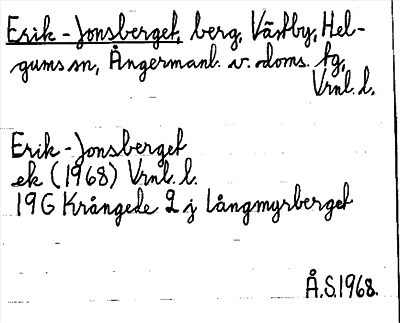 Erik-Jonsberget, berg, Västby, Hel-
gums sn, Ångermanl. v. doms. tg,
Vrnl. l.
Erik-Jonsberget
ek (1968) Vrnl. l.
19G Krångede 2 j Långmyrberget
Å.S.1968.